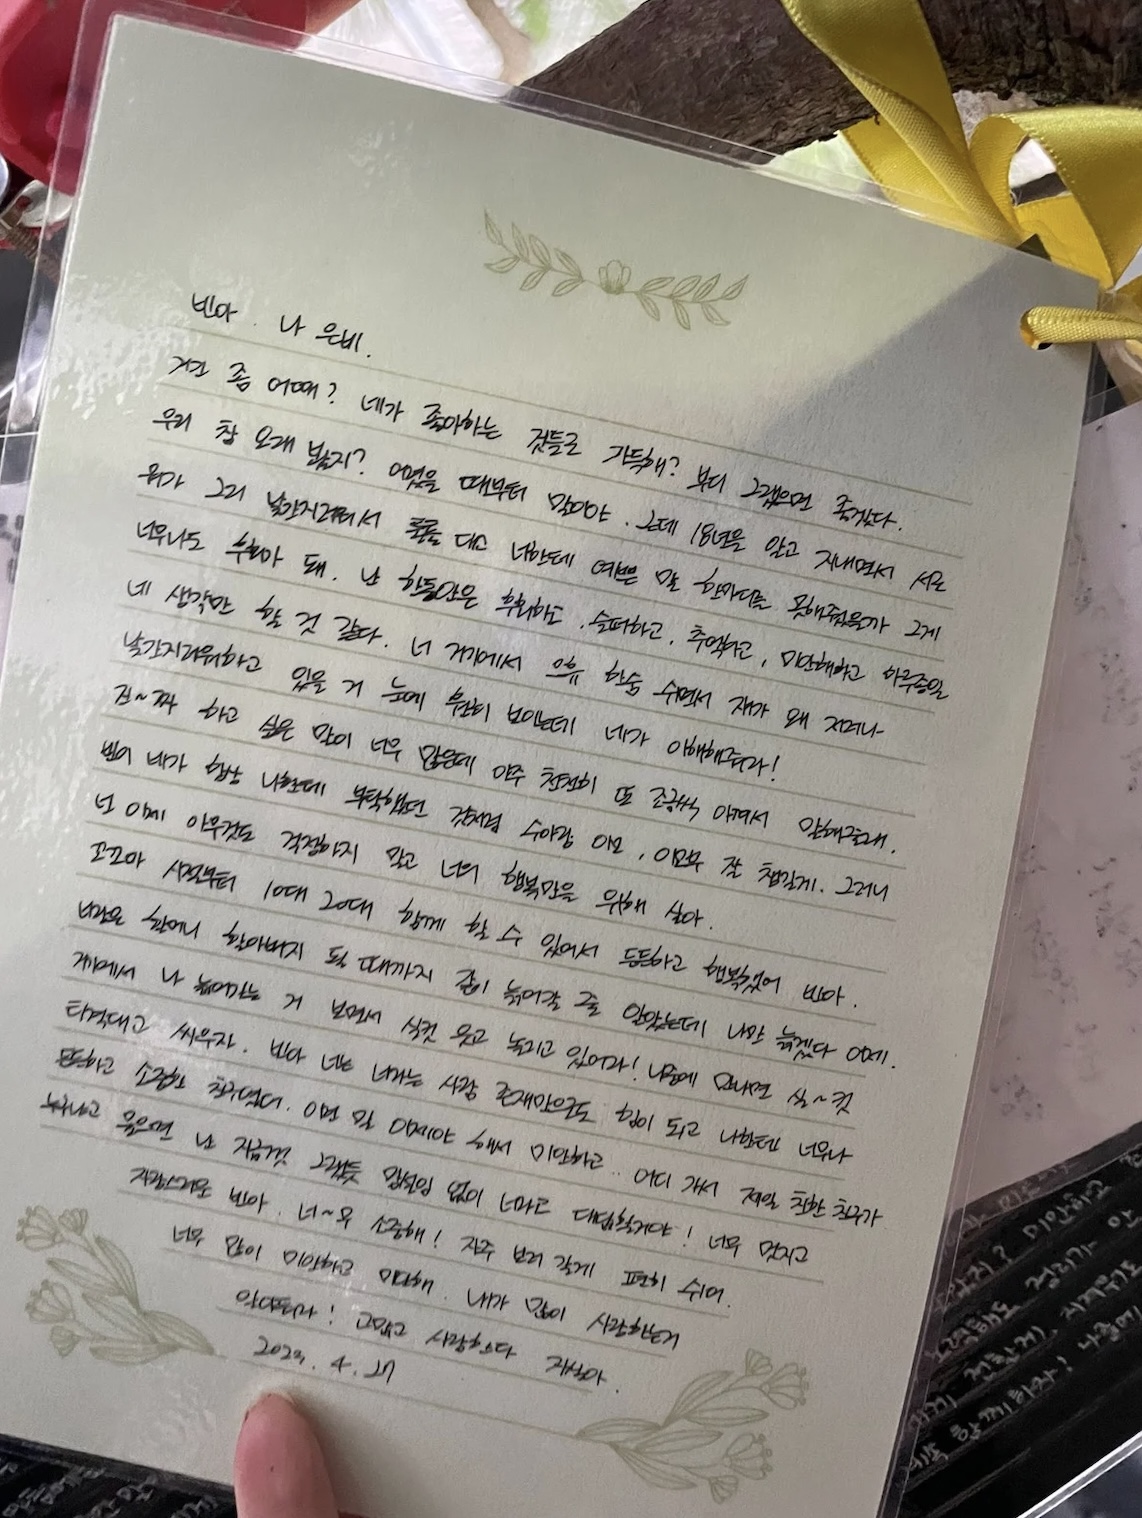 빈아. 나 은비.
거긴 좀 어때? 네가 좋아하는 것들로 가득해? 부디 그랬으면 좋겠다.
우리 참 오래 봤지? 어렸을 때부터 말이야. 근데 18년을 알고 지내면서 서로
뭐가 그리 낯간지러워서 툴툴 대고 너한테 예쁜 말 한마디를 못해줬을까 그게
너무나도 후회가 돼. 난 한동안은 후회하고, 슬퍼하고, 추억하고, 미안해하고 하루종일
네 생각만 할 것 같다. 너 거기에서 어휴 한숨 쉬면서 쟤가 왜 저러나
낯간지러워하고 있을 거 눈에 훤히 보이는데 네가 이해해줘라!
진~짜 하고 싶은 말이 너무 많은데 아주 천천히 또 조금씩 아껴서 말해줄래.
빈이 네가 항상 나한테 부탁했던 것처럼 수아랑 이모, 이모부 잘 챙길게. 그러니
넌 이제 아무것도 걱정하지 말고 너의 행복만을 위해 살아.
꼬꼬마 시절부터 10대 20대 함께 할 수 있어서 든든하고 행복했어 빈아.
할머니 할아버지 될 때까지 같이 늙어갈 줄 알았는데 나만 늙겠다 이제.
거기에서 나 늙어가는 거 보면서 실컷 웃고 놀리고 있어라! 나중에 만나면 실~컷
티격대고 싸우자. 빈아 너는 너라는 사람 존재만으로도 힘이 되고 나한테 너무나
특별하고 소중한 친구였어. 이런 말 이제야 해서 미안하고.. 어디 가서 제일 친한 친구가
누구냐고 물으면 난 지금껏 그랬듯 망설임 없이 너라고 대답할거야! 너무 멋지고
자랑스러운 빈아. 너~무 소중해! 자주 보러 갈게 편히 쉬어.
너무 많이 미안하고 미안해. 내가 많이 사랑하는거
알지! 고맙고 사랑한다 자식아.
2023. 4. 27